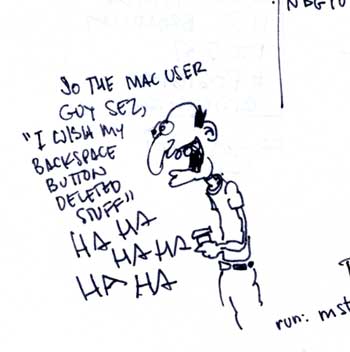 SO THE MAC USER
GUY SEZ,
"I WISH MY
BACKSPACE
BUTTON
DELETED
STUFF"
HA HA
HA HA
HA HA
run: mst